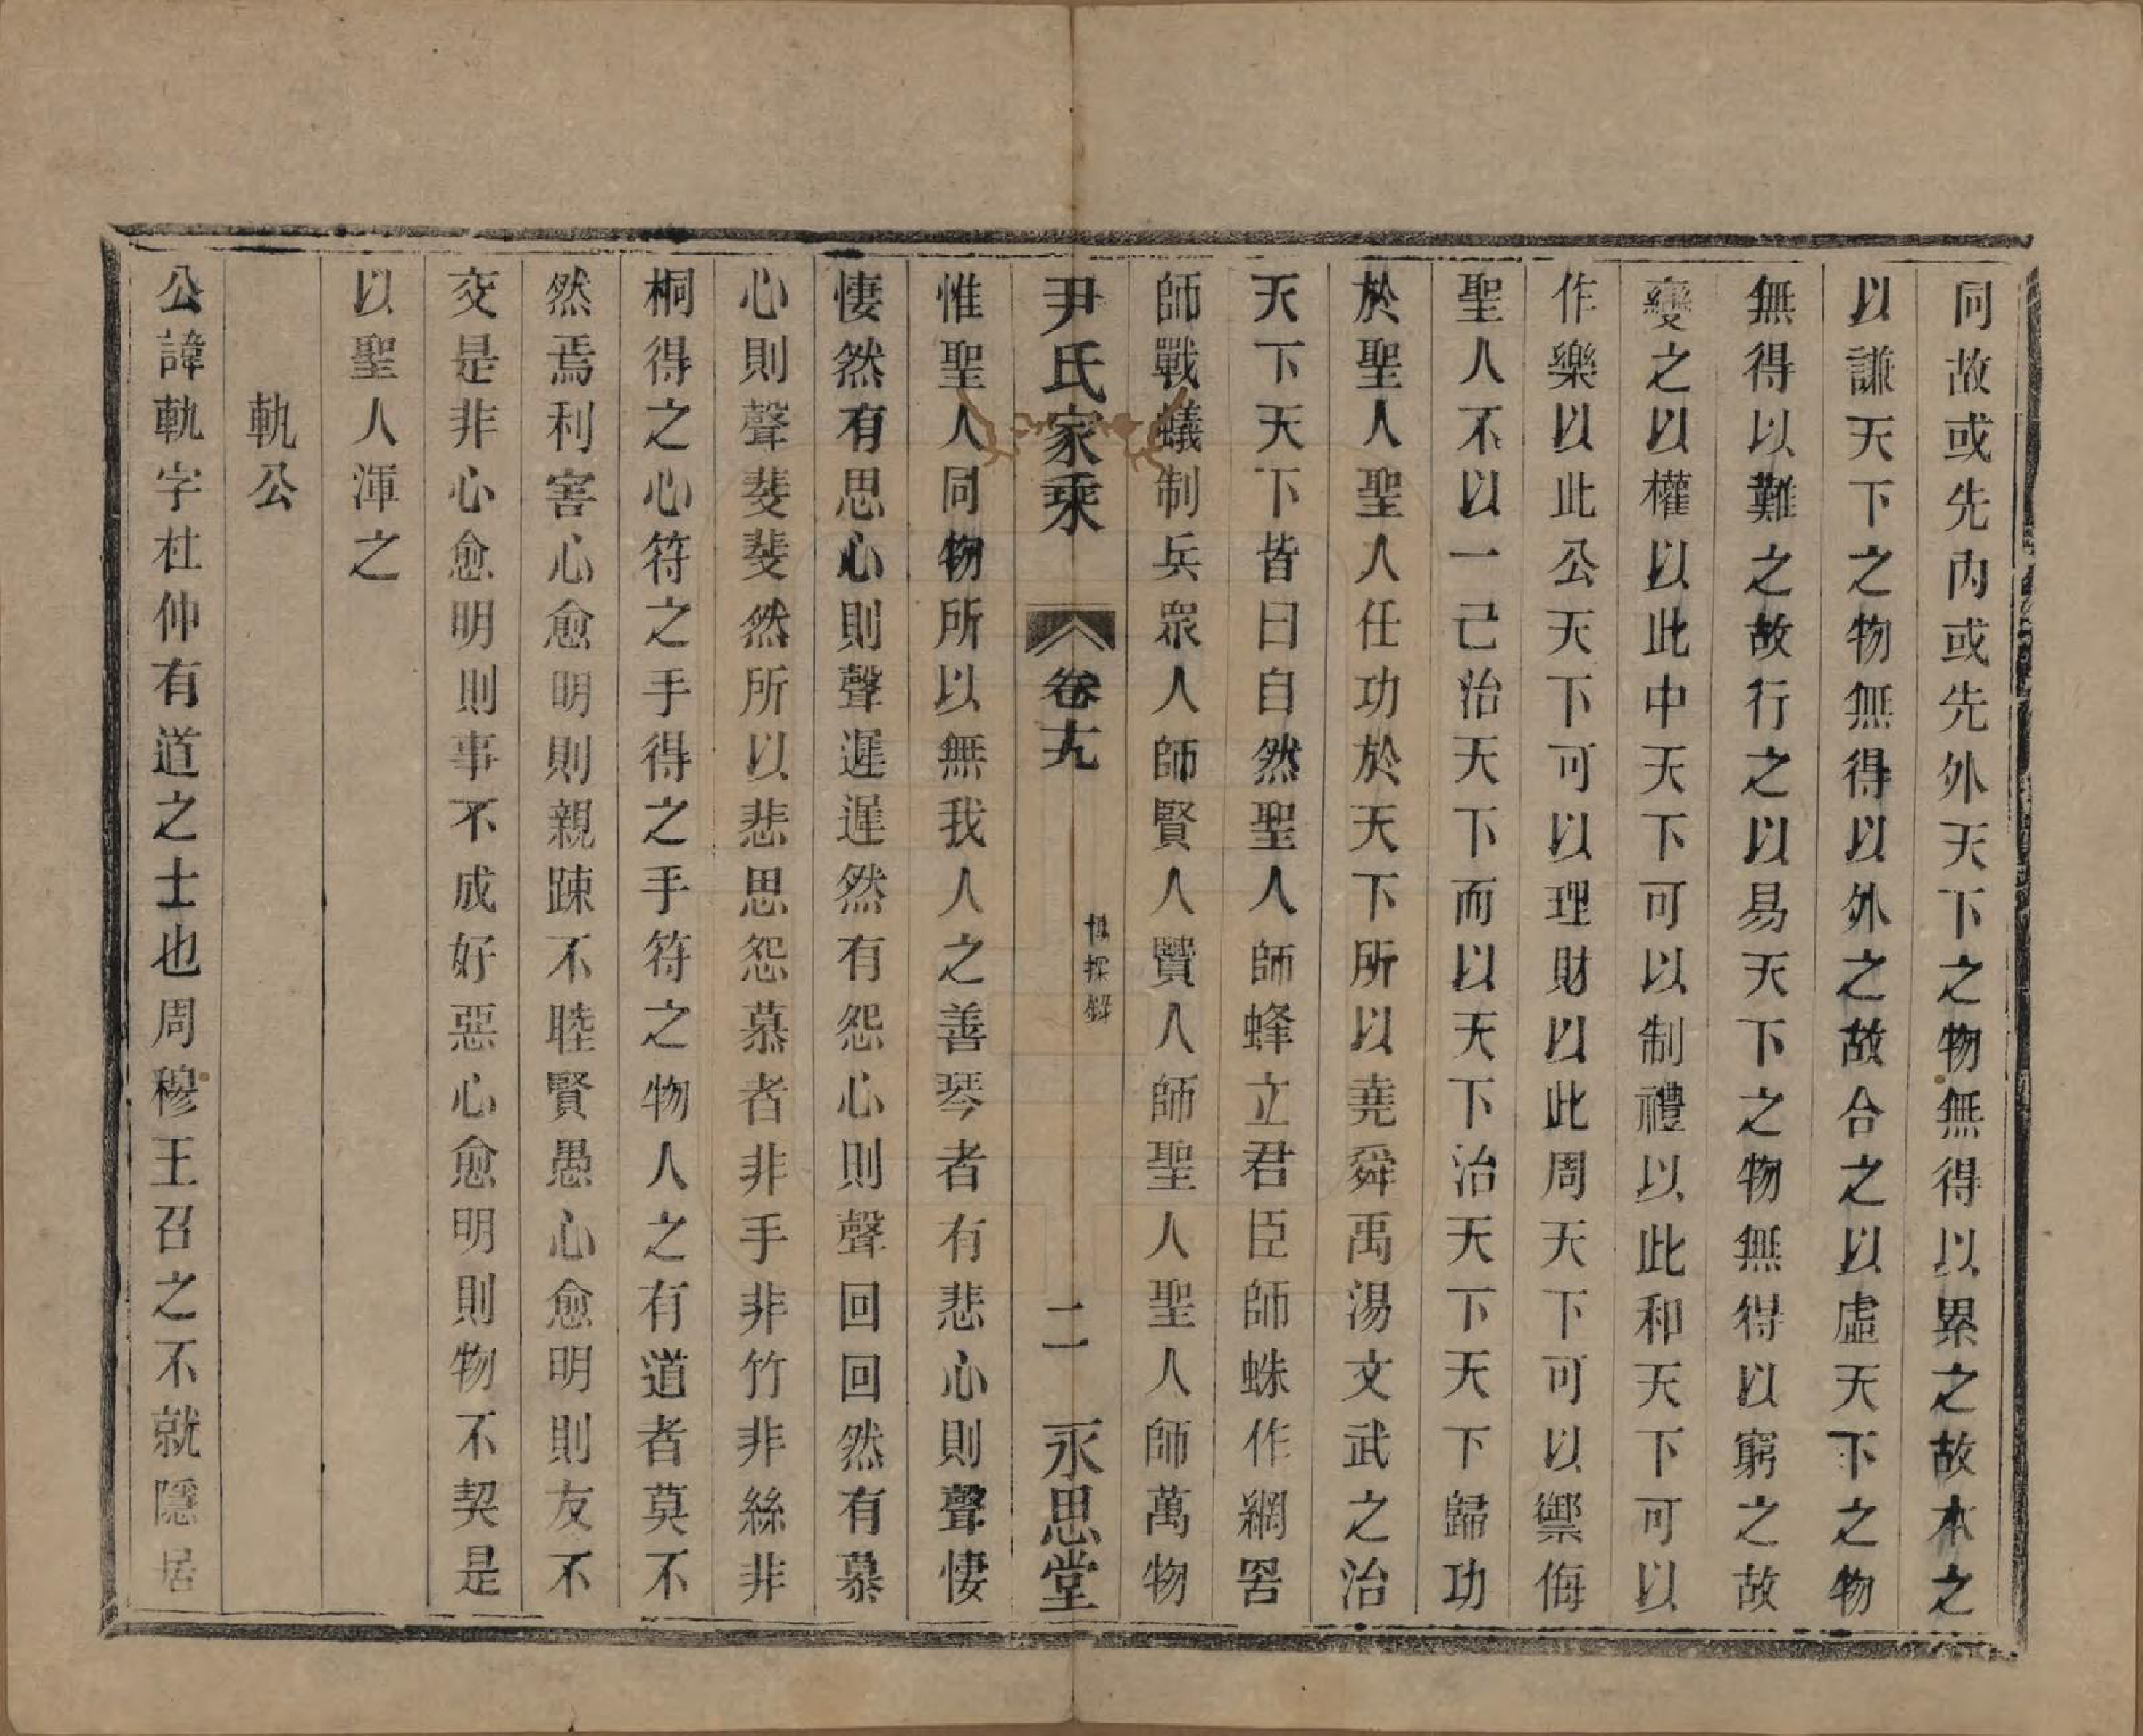 同故或先內或先外天下之物無得以累之故本之
以謙天下之物無得以外之故合之以虛天下之物
無得以難之故行之以易天下之物無得以窮之故
變之以權以此中天下可以制禮以此和天下可以
作樂以此公天下可以理財以此周天下可以禦侮
聖人不以一己治天下而以天下治天下天下歸功
於聖人聖人任功於天下所以堯舜禹湯文武之治
天下天下皆曰自然聖人師蜂立君臣師蛛作網罟
師戰蟻制兵眾人師賢人賢人師聖人聖人師萬物
尹氏家乘 卷十九 博採錄 二 永思堂
惟聖人同物所以無我人之善琴者有悲心則聲悽
悽然有思心則聲遲遲然有怨心則聲回回然有慕
心則聲斐斐然所以悲思怨慕者非手非竹非絲非
桐得之心符之手得之手符之物人之有道者莫不
然焉利害心愈明則親踈不睦賢愚心愈明則友不
交是非心愈明則事不成好惡心愈明則物不契是
以聖人渾之
軌公
公諱軌字杜仲有道之士也周穆王召之不就隱居